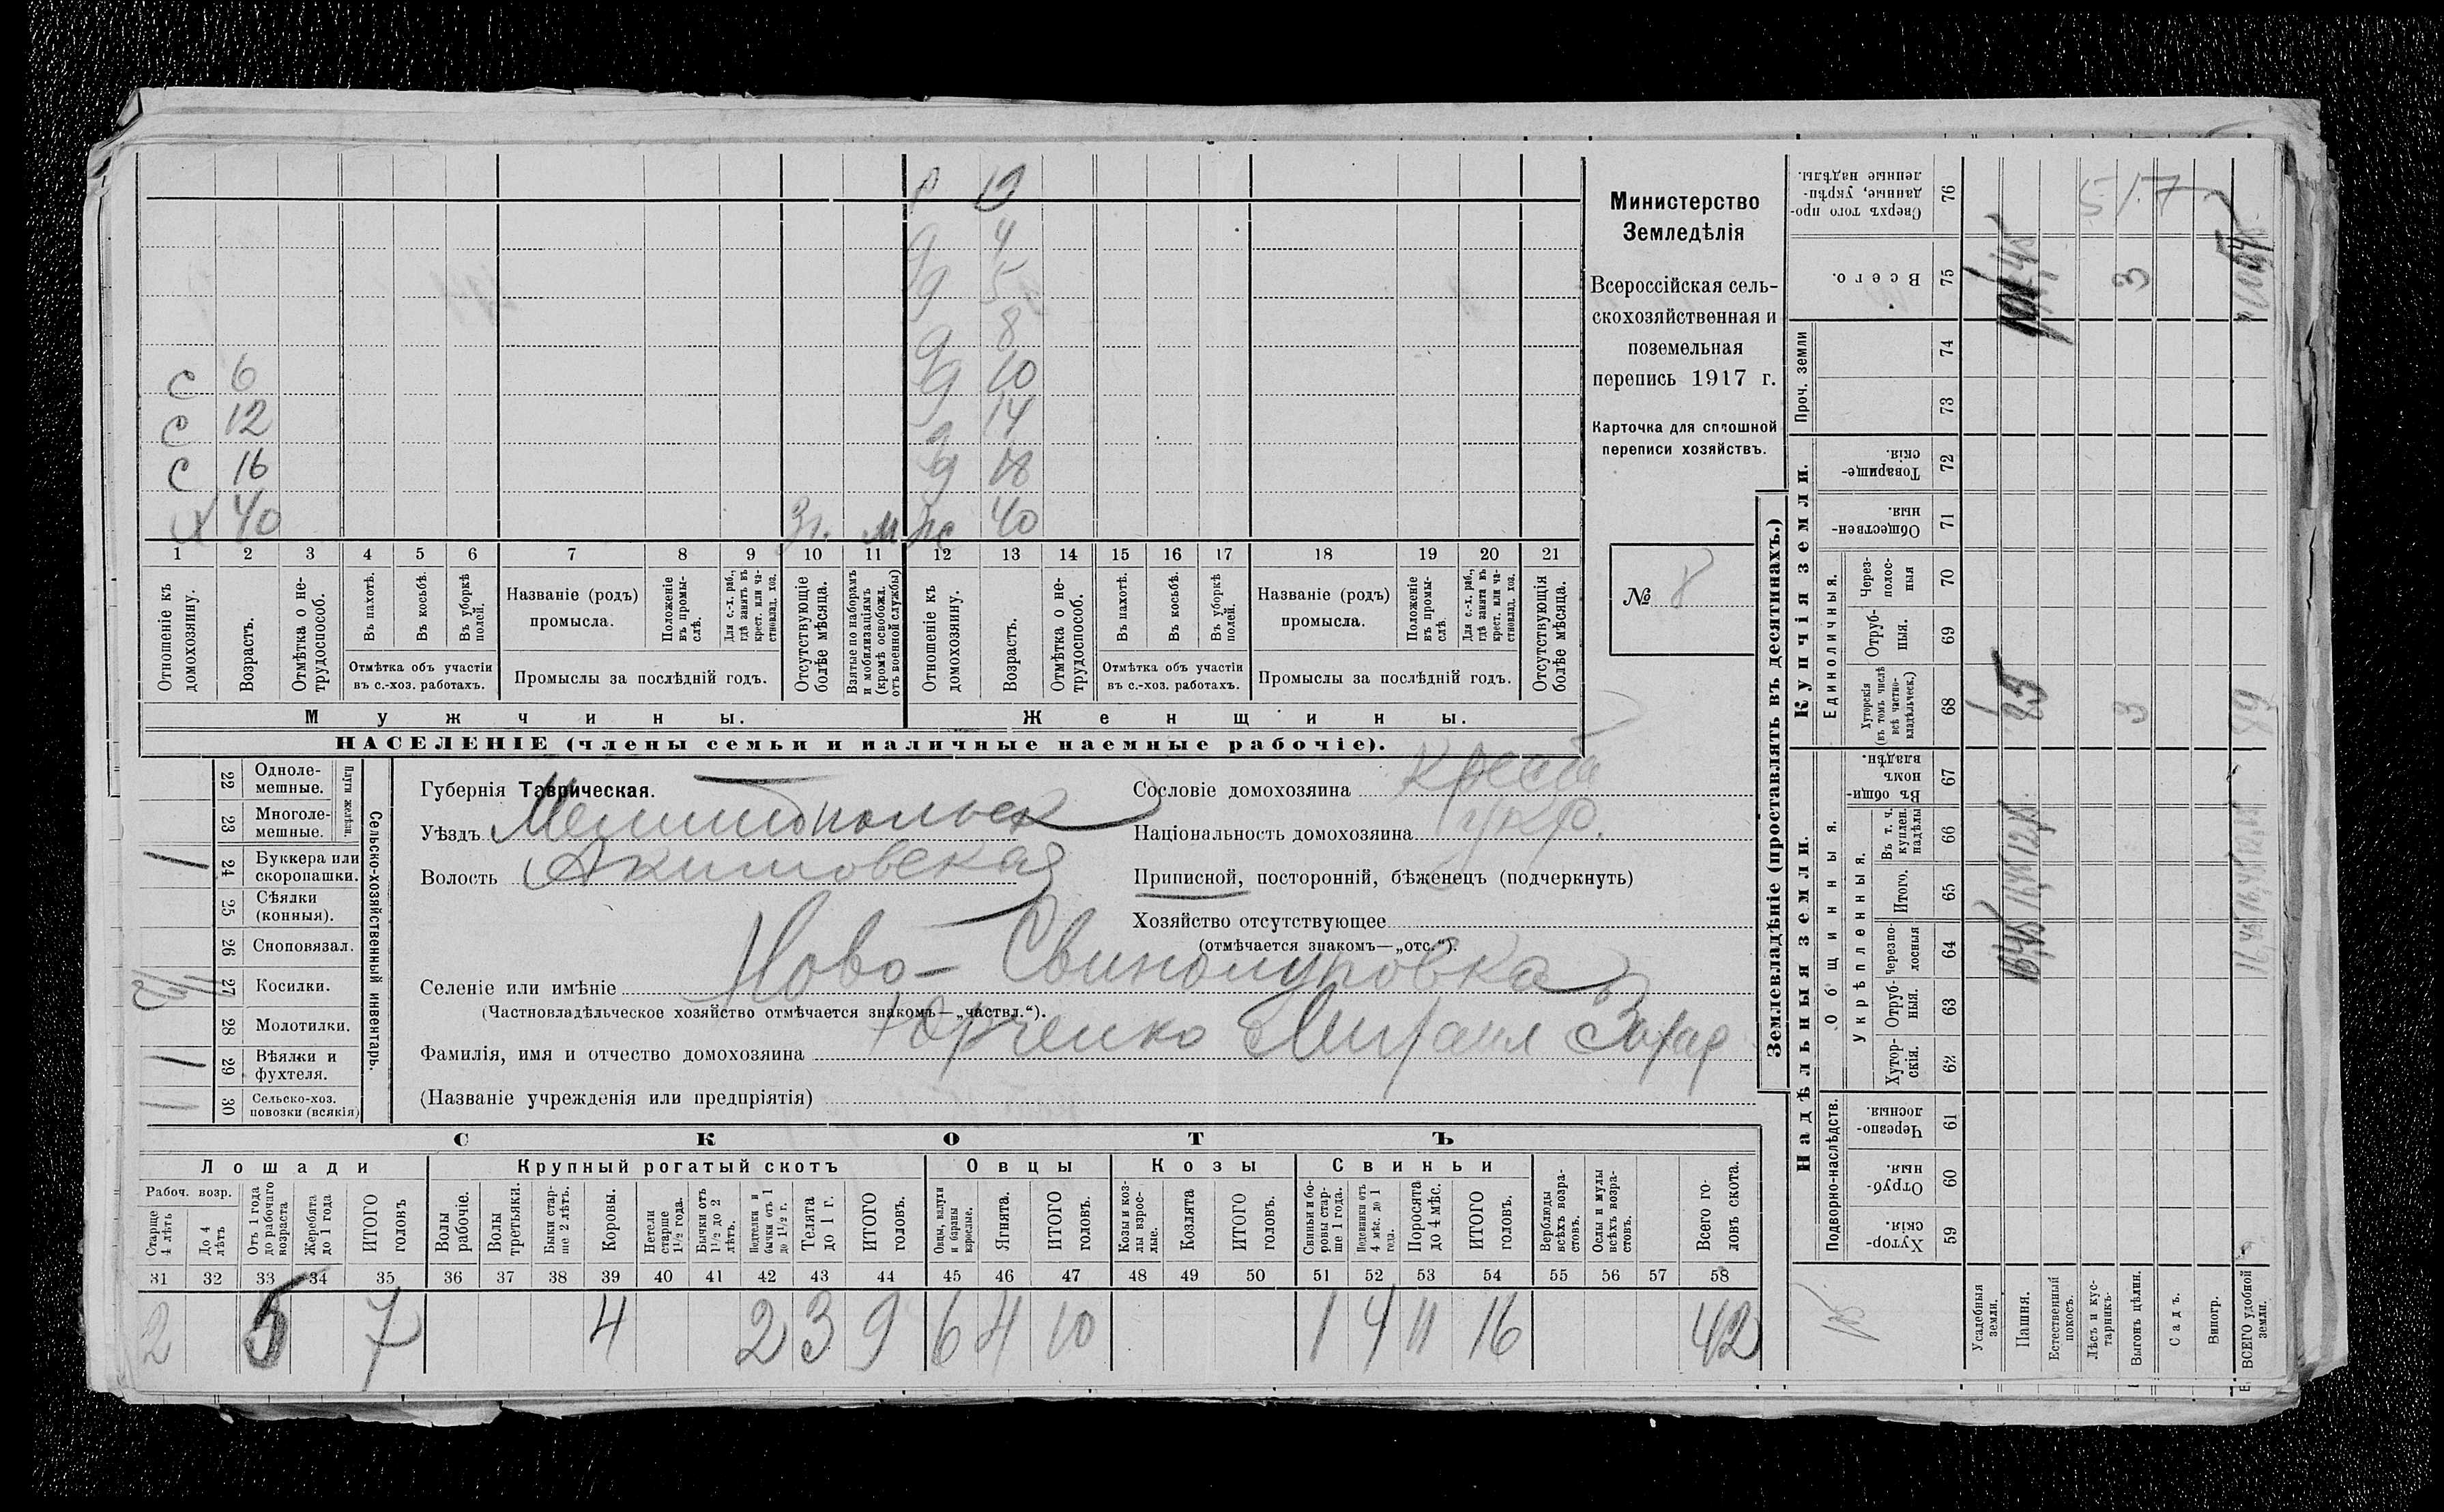 Министерство
Земледѣлія
Всероссійская сель-
скохозяйственная и
поземельная
перепись 1917 г.
Карточка для сплошной
переписи хозяйствъ.
№ 8
9 4
9 5
9 8
С 6 9 10
С 12 14
С 16 9 18
Х 40 М 40
1 2 3 4 5 6 7 8 9 10 11 12 13 14 15 16 17 18 19 20 21
Отношеніе къ домохозяину.
Возрастъ.
Отмѣтка о не-трудоспособ.
Въ пахотѣ.
Въ косьбѣ.
Въ уборкѣ полей.
Отмѣтка объ участіи
въ с.-хоз. работахъ.
Названіе (родъ)
промысла.
Положеніе въ промы-слѣ.
Для с.-х. раб., гдѣ занятъ въ крест. или ча-стновлад. хоз.
Промыслы за послѣдній годъ.
Отсутствующіе болѣе мѣсяца.
Взятые по наборамъ и мобилизаціямъ (кромѣ освобожд. отъ военной службы)
Отношеніе къ домохозяину.
Возрастъ.
Отмѣтка о не-трудоспособ.
Въ пахотѣ.
Въ косьбѣ.
Въ уборкѣ полей.
Отмѣтка объ участіи
въ с.-хоз. работахъ.
Названіе (родъ)
промысла.
Положеніе въ промы-слѣ.
Для с.-х. раб., гдѣ занята въ крест. или ча-стновлад. хоз.
Промыслы за послѣдній годъ.
Отсутствующія болѣе мѣсяца.
Мужчины.
Женщины.
НАСЕЛЕНІЕ (члены семьи и наличные наемные рабочіе).
Сельско-хозяйственный инвентарь.
Плуги желѣзн.
22 Одноле-мешные.
23 Многоле-мешные.
24 Буккера или скоропашки. 1
25 Сѣялки (конныя).
26 Сноповязал.
27 Косилки.
28 Молотилки.
29 Вѣялки и фухтеля. 1
30 Сельско-хоз. повозки (всякія) 1
Губернія Таврическая.
Уѣздъ Мелитопольск
Волость Акимовская
Селеніе или имѣніе Ново-
(Частновладѣльческое хозяйство отмѣчается знакомъ—„частвл.“).
Фамилія, имя и отчество домохозяина Юрченко Михаил Захар
(Названіе учрежденія или предпріятія)
Сословіе домохозяина крест
Національность домохозяина укр.
Приписной, посторонній, бѣженецъ (подчеркнуть)
Хозяйство отсутствующее
(отмѣчается знакомъ—„отс.“).
СКОТЪ
Лошади
Крупный рогатый скотъ
Овцы
Козы
Свиньи
Рабоч. возр.
Старше 4 лѣтъ
До 4 лѣтъ
Отъ 1 года до рабочаго возраста
Жеребята до 1 года
ИТОГО головъ
Волы рабочіе.
Волы третьяки.
Быки стар-ше 2 лѣтъ.
Коровы.
Нетели старше 1½ года.
Бычки отъ 1½ до 2 лѣтъ.
Подтелки и бычки отъ 1 до 1½ г.
Телята до 1 г.
ИТОГО головъ.
Овцы, валухи и бараны взрослые.
Ягнята.
ИТОГО головъ.
Козы и коз-лы взрос-лые.
Козлята
ИТОГО головъ.
Свиньи и бо-ровы стар-ше 1 года.
Подсвинки отъ 4 мѣс. до 1 года.
Поросята до 4 мѣс.
ИТОГО головъ.
Верблюды всѣхъ возра-стовъ.
Ослы и мулы всѣхъ возра-стовъ.
Всего го-ловъ скота.
31 32 33 34 35 36 37 38 39 40 41 42 43 44 45 46 47 48 49 50 51 52 53 54 55 56 57 58
2 5 7 4 2 3 9 6 4 10 1 4 11 16 42
Землевладѣніе (проставлять въ десятинахъ.)
Надѣльныя земли.
Купчія земли.
Проч. земли
Подворно-наслѣдств.
Общинныя.
Укрѣпленныя.
Единоличныя.
Сверхъ того про-данные, укрѣп-ленные надѣлы. 76
Всего. 75
74
73
Товарище-скія. 72
Обществен-ныя. 71
Через-полос-ныя 70
Отруб-ныя. 69
Хуторскія (въ томъ числѣ всѣ частно-владѣльческ.) 68
Въ общи-номъ владѣн. 67
Въ т. ч. куплен. надѣлы 66
Итого. 65
Черезпо-лосныя 64
Отруб-ныя. 63
Хутор-скія. 62
Черезпо-лосныя. 61
Отруб-ныя. 60
Хутор-скія. 59
Усадебныя земли.
Пашня.
Естественный покосъ.
Лѣсъ и кус-тарникъ.
Выгонъ цѣлин. 3 3
Садъ.
Виногр.
ВСЕГО удобной земли.